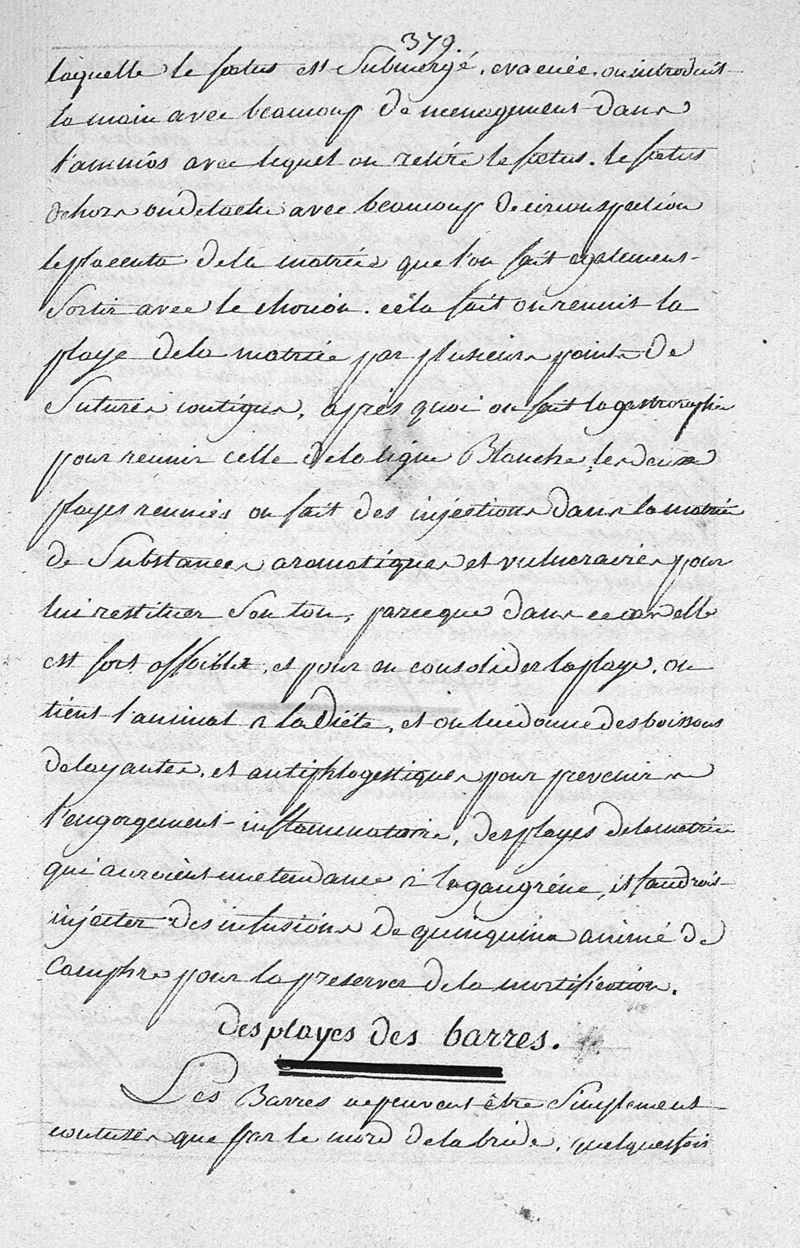 379.
laquelle le fœtus est Submergé, evacuée, on introduit
la main avec beaucoup de menagement dans
l'amnios avec lequel on retire le fœtus. le fœtus
dehors on detache avec beaucoup de circonspection
le placenta de la matrice que l'on fait egalement
Sortir avec le chorion. cela fait on reunit la
playe de la matrice par plusieurs points de
Sutures contigus, après quoi on fait la gastroraphie
pour reunir celle de la ligne Blanche, les deux
playes reunies on fait des injections dans la matrice
de Substances aromatiques et vulneraires pour
lui restituer Son ton, parceque dans ce cas elle
est fort affoiblie, et pour en consolider la playe. on
tient l'animal à la diéte, et on lui donne des boissons
delayantes, et antiphlogistiques pour prevenir
l'engorgement inflammatoire, des playes de la matrice
qui auroient une tendance à la gangréne, il faudroit
injecter des infusions de quinquina animé de
Camphre pour la preserver de la mortification.
des playes des barres.
Les Barres ne peuvent être Simplement
contuses que par le mord de la bride, quelquefois